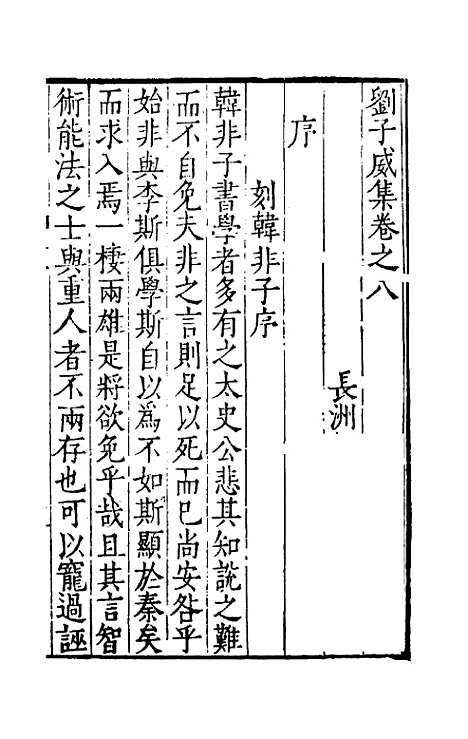 劉子威集卷之八
長洲
序
刻韓非子序
韓非子書學者多有之太史公悲其知說之難
而不自免夫非之言則足以死而已尚安咎乎
始非與李斯俱學斯自以為不如斯顯於秦矣
而求入焉一棲兩雄是將欲免乎哉且其言智
術能法之士與重人者不兩存也可以寵過誣